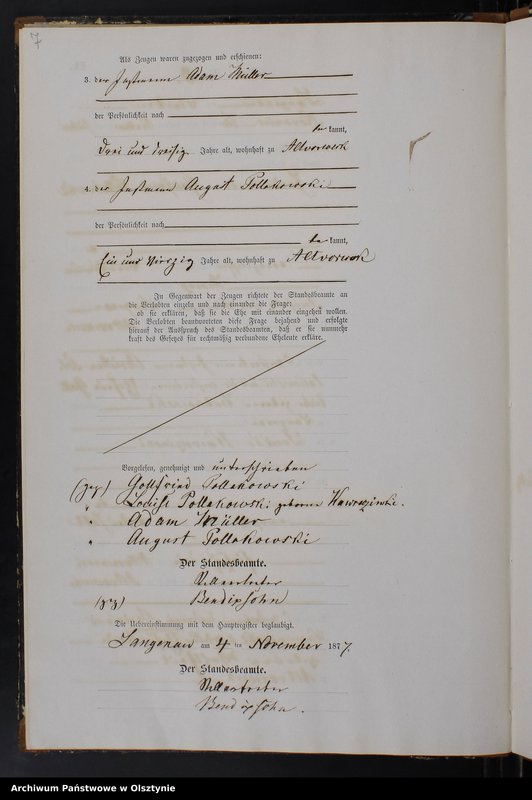 7
Als Zeugen waren zugezogen und erschienen:
3. der Instmann Adam Müller
der Persönlichkeit nach
be kannt,
drei und dreißig Jahre alt, wohnhaft zu Altvorwerk
4. der Instmann August Pollakowski
der Persönlichkeit nach
be kannt,
Ein und vierzig Jahre alt, wohnhaft zu Altvorwerk
In Gegenwart der Zeugen richtete der Standesbeamte an
die Verlobten einzeln und nach einander die Frage:
ob sie erklären, daß sie die Ehe mit einander eingehen wollen.
Die Verlobten beantworteten diese Frage bejahend und erfolgte
hierauf der Ausspruch des Standesbeamten, daß er sie nunmehr
kraft des Gesetzes für rechtmäßig verbundene Eheleute erkläre.
Vorgelesen, genehmigt und unterschrieben
(gez) Gottfried Pollakowski
" Louise Pollakowski geborne
" Adam Müller
" August Pollakowski
Der Standesbeamte.
Stellvertreter
(gez) Bendixsohn
Die Uebereinstimmung mit dem Hauptregister beglaubigt.
Langenau am 4 ten November 1877.
Der Standesbeamte.
Stellvertreter
Bendixsohn.
Archiwum Państwowe w Olsztynie